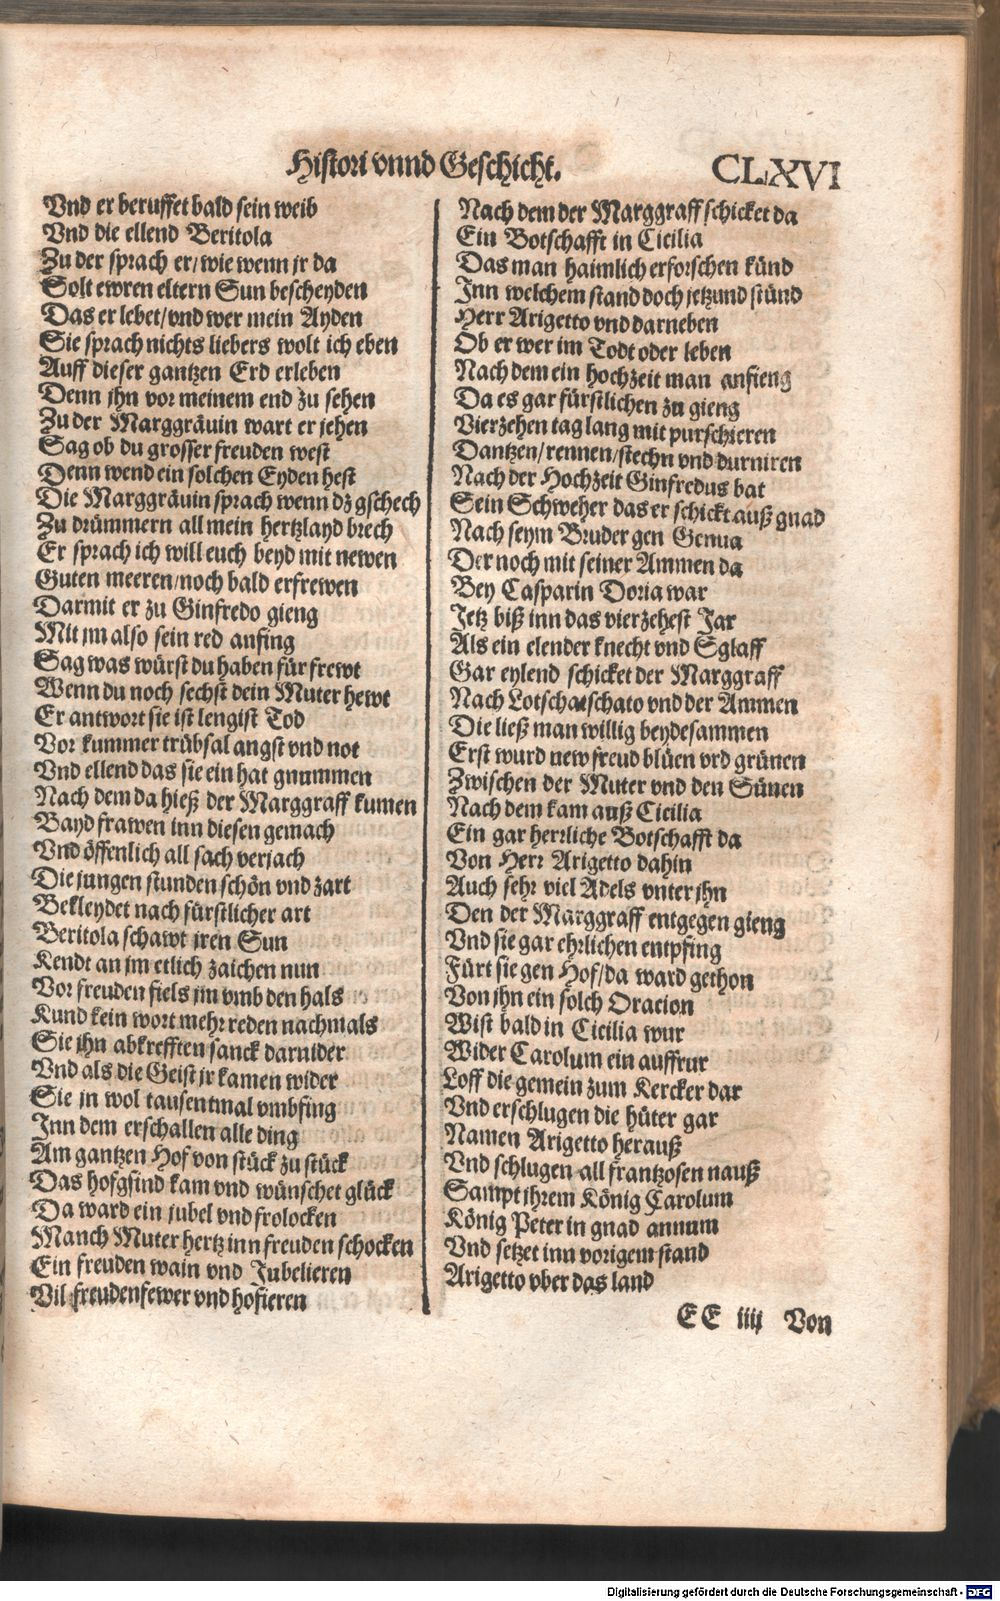 Histori vnnd Geschicht. CLXVI
Vnd er beruffet bald sein weib
Vnd die ellend Beritola
Zu der sprach er/wie wenn jr da
Solt ewren eltern Sun bescheyden
Das er lebet/vnd wer mein Ayden
Sie sprach nichts liebers wolt ich eben
Auff dieser gantzen Erd erleben
Denn jhn vor meinem end zu sehen
Zu der Marggräuin wart er jehen
Sag ob du grosser freuden west
Denn wend ein solchen Eyden hest
Die Marggräuin sprach wenn dz gschech
Zu drümmern all mein hertzlayd brech
Er sprach ich will euch beyd mit newen
Guten meeren/noch bald erfrewen
Darmit er zu Ginfredo gieng
Mit jm also sein red anfing
Sag was würst du haben für frewt
Wenn du noch sechst dein Muter hewt
Er antwort sie ist lengist Tod
Vor kummer trübsal angst vnd not
Vnd ellend das sie ein hat gnummen
Nach dem da hieß der Marggraff kumen
Bayd frawen inn diesen gemach
Vnd öffenlich all sach verjach
Die jungen stunden schön vnd zart
Bekleydet nach fürstlicher art
Beritola schawt jren Sun
Kendt an jm etlich zaichen nun
Vor freuden fiels jm vmb den hals
Kund kein wort mehr reden nachmals
Sie jhn abkrefften sanck darnider
Vnd als die Geist jr kamen wider
Sie jn wol tausentmal vmbfing
Inn dem erschallen alle ding
Am gantzen Hof von stück zu stück
Das hofgsind kam vnd wünschet glück
Da ward ein jubel vnd frolocken
Manch Muter hertz inn freuden schocken
Ein freuden wain vnd Jubelieren
Vil freudenfewer vnd hofieren
Nach dem der Marggraff schicket da
Ein Botschafft in Cicilia
Das man haimlich erforschen künd
Inn welchem stand doch jetzund stünd
Herr Arigetto vnd darneben
Ob er wer im Todt oder leben
Nach dem ein hochzeit man anfieng
Da es gar fürstlichen zu gieng
Vierzehen tag lang mit purschieren
Dantzen/rennen/stechn vnd durniren
Nach der Hochzeit Ginfredus bat
Sein Schweher das er schickt auß gnad
Nach seym Bruder gen Genua
Der noch mit seiner Ammen da
Bey Casparin Doria war
Jetz biß inn das vierzehest Jar
Als ein elender knecht vnd Sglaff
Gar eylend schicket der Marggraff
Nach Lotschatschato vnd der Ammen
Die ließ man willig beydesammen
Erst wurd new freud blüen vrd grünen
Zwischen der Muter vnd den Sünen
Nach dem kam auß Cicilia
Ein gar herrliche Botschafft da
Von Herr Arigetto dahin
Auch sehr viel Adels vnter jhn
Den der Marggraff entgegen gieng
Vnd sie gar ehrlichen entpfing
Fürt sie gen Hof/da ward gethon
Von jhn ein solch Oracion
Wist bald in Cicilia wur
Wider Carolum ein auffrur
Loff die gemein zum Kercker dar
Vnd erschlugen die hüter gar
Namen Arigetto herauß
Vnd schlugen all frantzosen nauß
Sampt jhrem König Carolum
König Peter in gnad annum
Vnd setzet inn vorigem stand
Arigetto vber das land
EE iiij Von
Digitalisierung gefördert durch die Deutsche Forschungsgemeinschaft - DFG